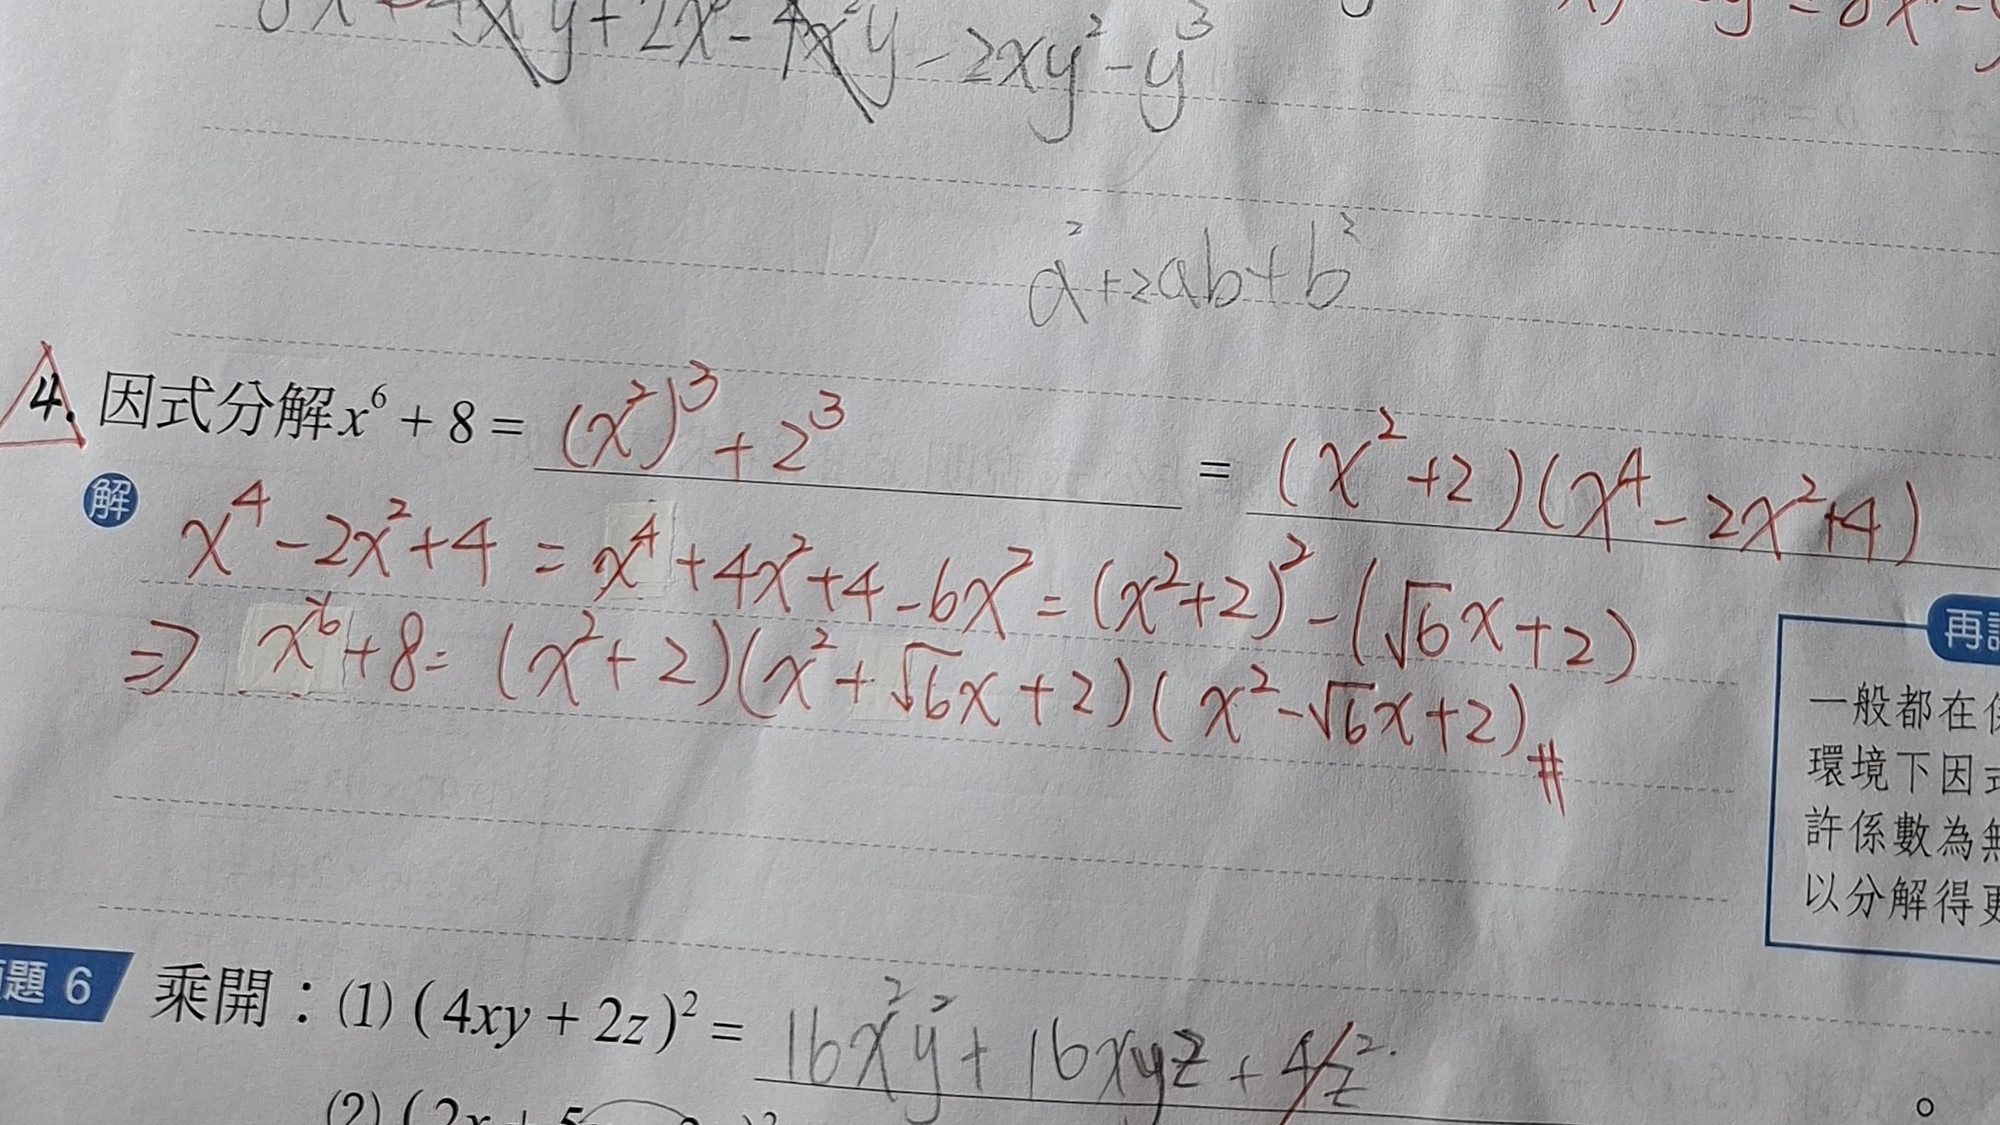 + 4x²y + 2x² - 4x²y - 2xy² - y³
a² + 2ab + b²
4. 因式分解 x⁶ + 8 = (x²)³ + 2³ = (x² + 2)(x⁴ - 2x² + 4)
解
x⁴ - 2x² + 4 = x⁴ + 4x² + 4 - 6x² = (x² + 2)² - (√6x + 2)
⇒ x⁶ + 8 = (x² + 2)(x² + √6x + 2)(x² - √6x + 2)#
再
一般都在
環境下因式
許係數為無
以分解得更
題 6 乘開：(1) (4xy + 2z)² = 16x²y² + 16xyz + 4z² 。
(2) (2x + 5